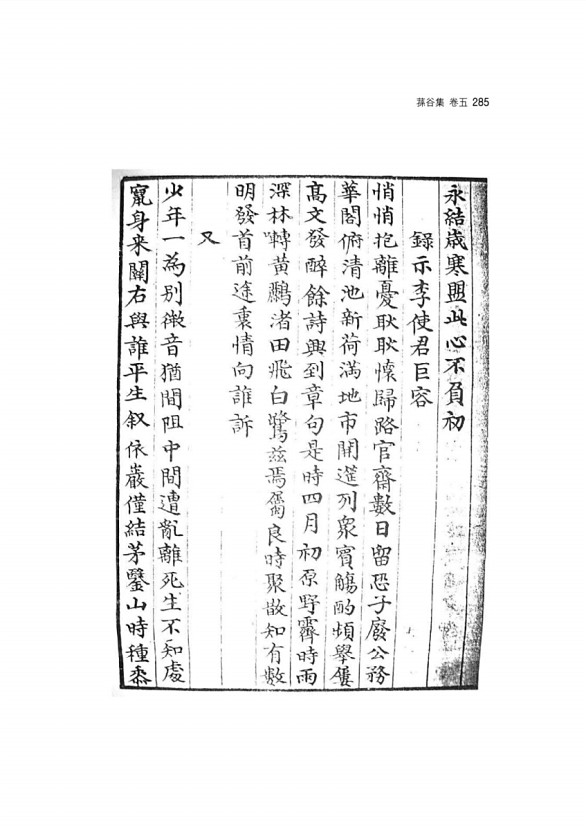 蓀谷集 卷五 285
永結歲寒盟此心不負初
錄示李使君臣容
悄悄抱離憂耿耿懷歸路官齋數日留恐子廢公務
華閣俯清池新荷滿地市開筵列衆賓觴酌頻擧屢
高文發醉餘詩興到章句是時四月初原野霽時雨
深林囀黃鸝渚田飛白鷺兹焉屬良時聚散知有數
明發首前途裏情向誰訴
又
少年一為別徽音猶間阻中間遭亂離死生不知處
竄身来關右與誰平生叙依巖僅結茅鑿山時種黍